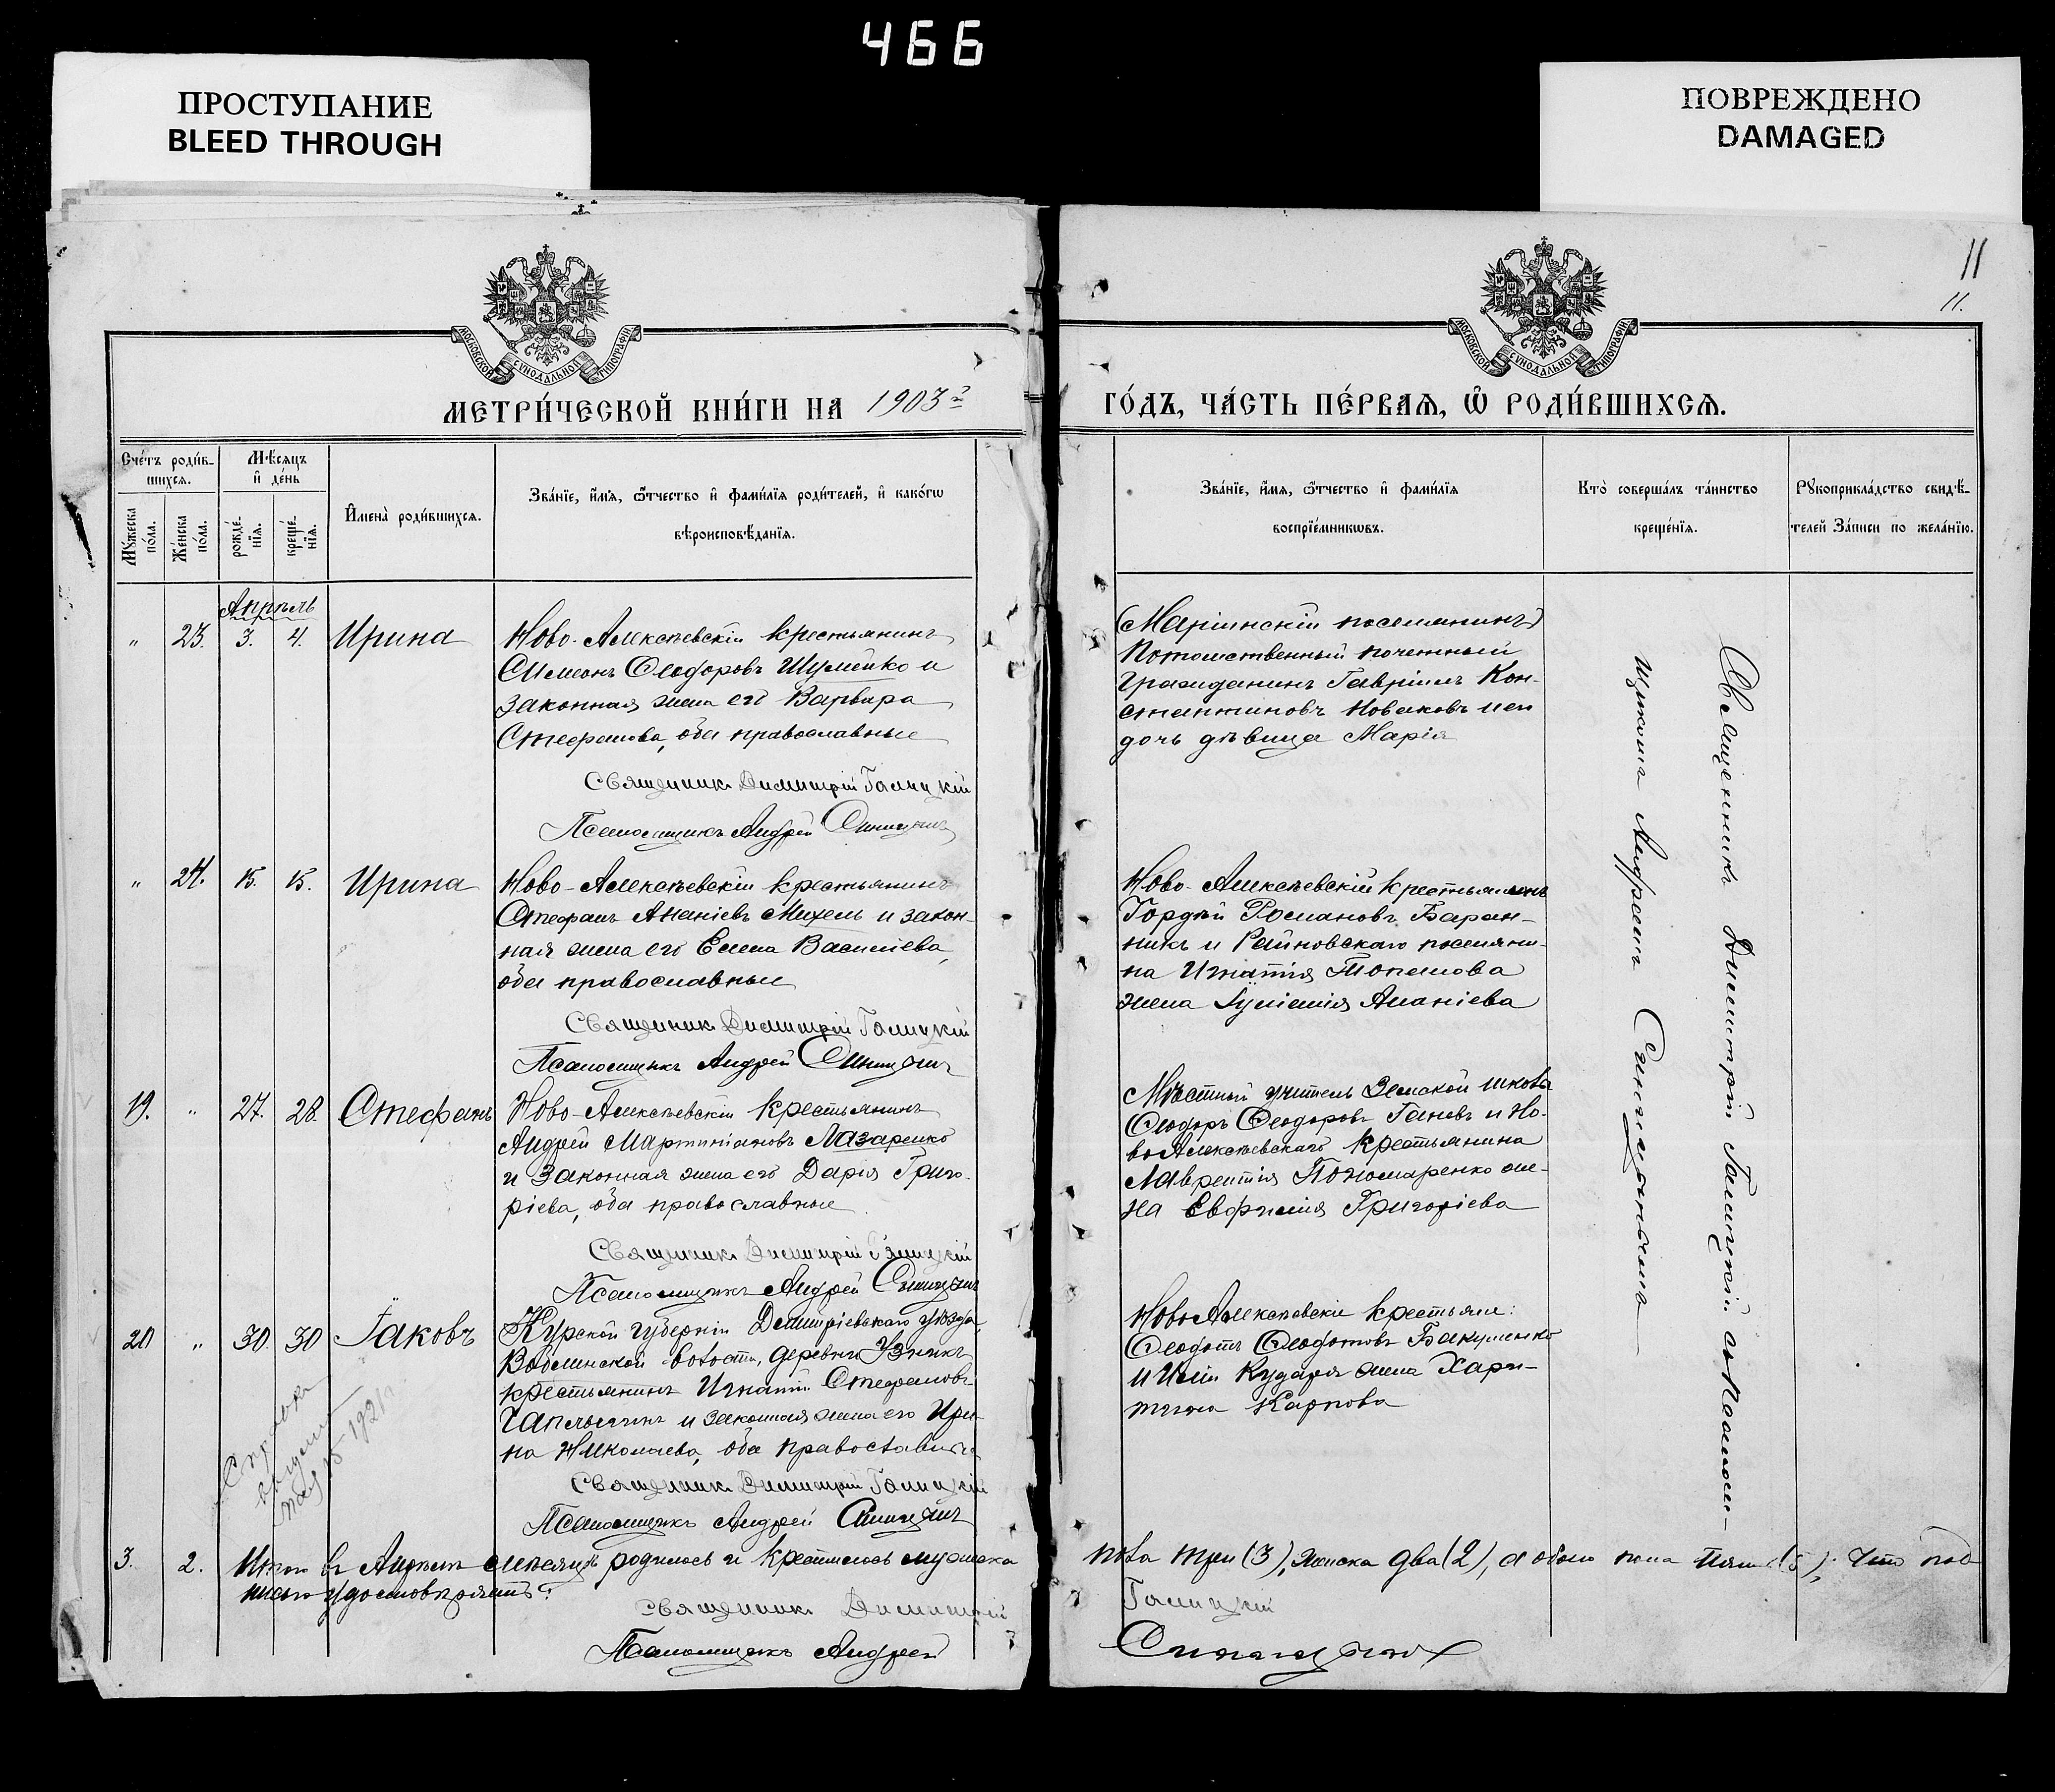 466
ПРОСТУПАНИЕ
BLEED THROUGH
ПОВРЕЖДЕНО
DAMAGED
11
11.
МОСКОВСКОЙ СѴНОДАЛЬНОЙ ТИПОГРАФІИ
МОСКОВСКОЙ СѴНОДАЛЬНОЙ ТИПОГРАФІИ
МЕТРИ́ЧЕСКОЙ КНИ́ГИ НА 1903 г
ГО́ДЪ, ЧА́СТЬ ПЕ́РВАѦ, Ѿ РОДИ́ВШИХСѦ.
Сче́тъ роди́в-
шихсѧ.
Мꙋ́жеска
по́ла.
Же́нска
по́ла.
Мѣ́сѧцъ
и҆ де́нь
рожде́-
нїѧ.
креще́-
нїѧ.
И҆мена̀ роди́вшихсѧ.
Зва́нїе, и҆́мѧ, ѻ҆́тчество и҆ фами́лїѧ роди́телей, и҆ како́гѡ
вѣроисповѣ́данїѧ.
Зва́нїе, и҆́мѧ, ѻ҆́тчество и҆ фами́лїѧ
воспрїе́мникѡвъ.
Кто̀ соверша́лъ та́инство
креще́нїѧ.
Рꙋкоприкла́дство свидѣ́-
телей За́писи по жела́нїю.
Апрѣль
" 23. 3. 4. Ирина
Ново-Алексѣевскій крестьянинъ
Симеонъ Ѳеодоровъ Шулейко и
законная жена его Варвара
Стефанова, оба православные
Священник Димитрій Галицкій
Псаломщикъ Андрей Синицынъ
(Маріинскій поселянинъ)
Потомственный почетный
гражданинъ Гавріилъ Кон-
стантиновъ Новаковъ и его
дочь дѣвица Марія
" 24. 15. 15. Ирина
Ново-Алексѣевскій крестьянинъ
Стефанъ Ананіевъ Михель и закон-
ная жена его Елена Василіева,
оба православные
Священник Димитрій Галицкій
Псаломщикъ Андрей Синицынъ
Ново-Алексѣевскій крестьянинъ
Гордѣй Романовъ Баран-
никъ и Райновскаго поселяни-
на Игнатія Топалова
жена Іуліанія Ананіева
19. " 27. 28. Стефанъ
Ново-Алексѣевскій крестьянинъ
Андрей Мартиніановъ Лазаренко
и законная жена его Дарія Григо-
ріева, оба православные
Священник Димитрій Галицкій
Псаломщикъ Андрей Синицынъ
Мѣстный учитель Земской школы
Ѳеодоръ Ѳеодоровъ Ганевъ и Но-
воАлексѣевскаго крестьянина
Лаврентія Пономаренко же-
на Евфимія Григоріева
20 " 30. 30 Іаковъ
Курской губерніи Дмитріевскаго уѣзда,
волости, деревни
крестьянинъ Игнатій Стефановъ
Чаплыгинъ и законная жена его Ири-
на Николаева, оба православные
Священник Димитрій Галицкій
Псаломщикъ Андрей Синицынъ
НовоАлексѣевскіе крестьяне:
Ѳеодотъ Ѳеодотовъ Бакуменко
и Иліи Кударя жена Хари-
тина Карпова
Священникъ Димитрій Галицкій съ Псалом-
щикомъ Андреемъ Синицынымъ
Справка
выдана
15 1921
3. 2. Итого въ Апрѣлѣ мѣсяцѣ родилось и крестилось мужска
пола три (3), женска два (2), а обоего пола пять (5); что под
писью удостовѣряютъ:
Священник Димитрій Галицкій
Псаломщикъ Андрей Синицынъ